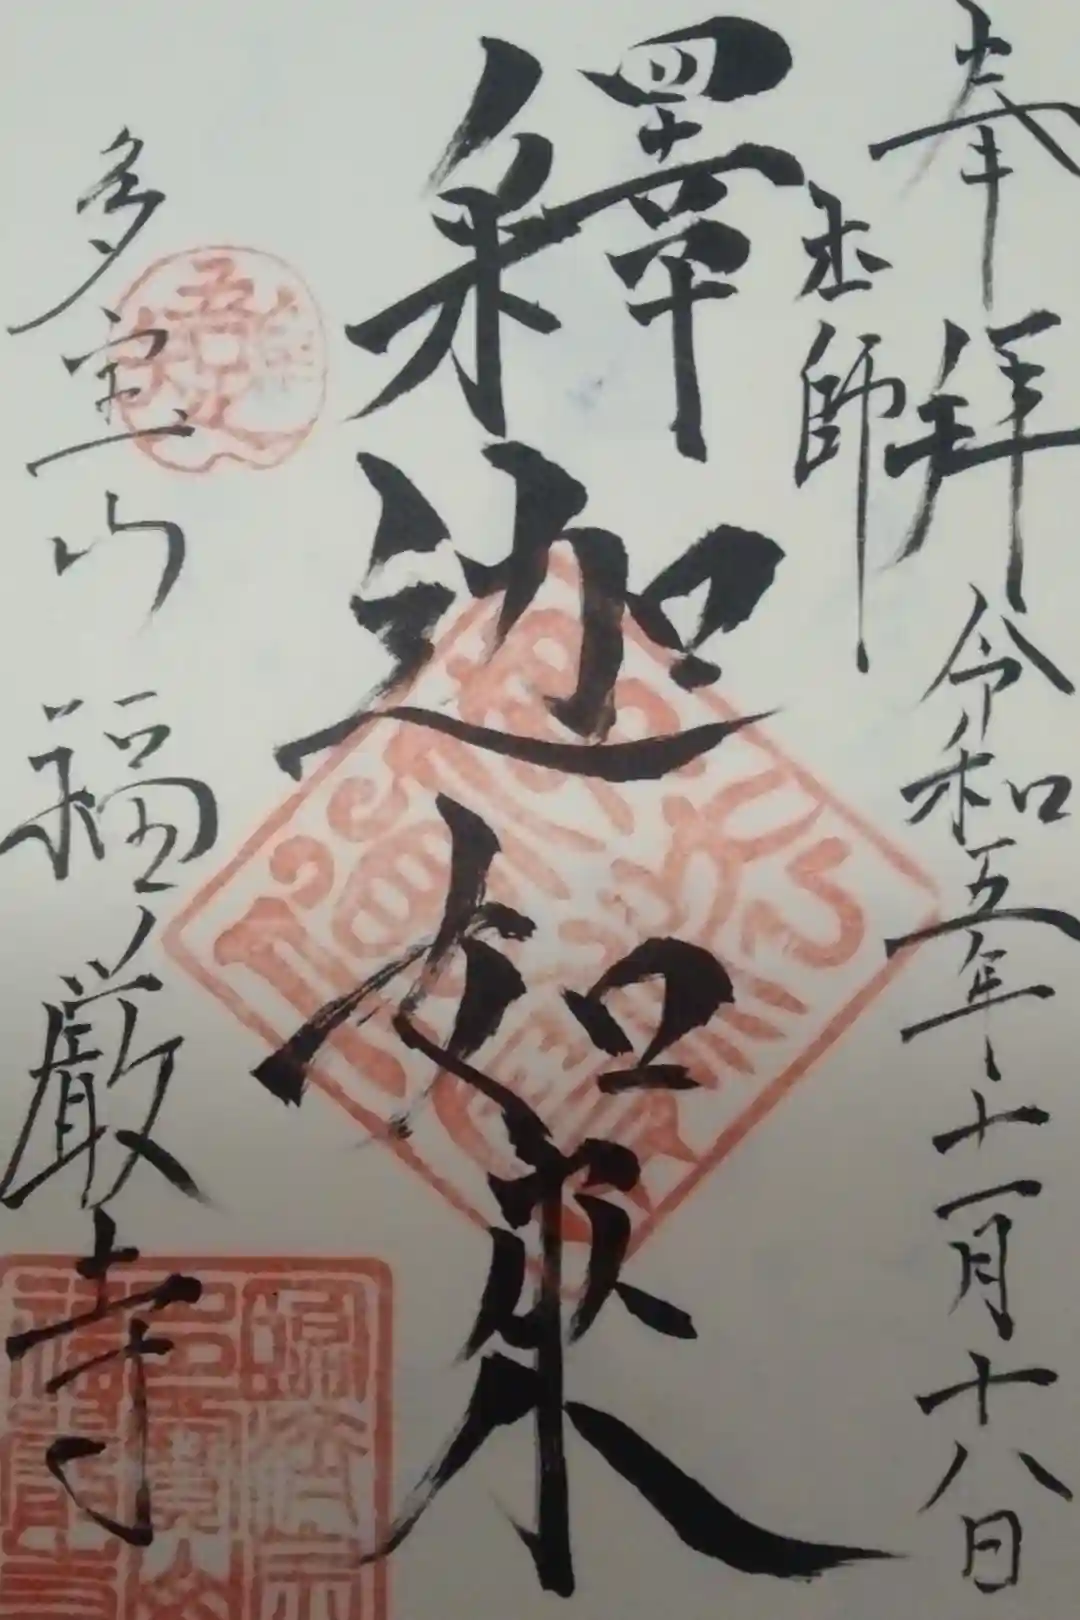 奉拝 令和五年十一月十八日
師
釋迦如來
多宝山 福厳寺